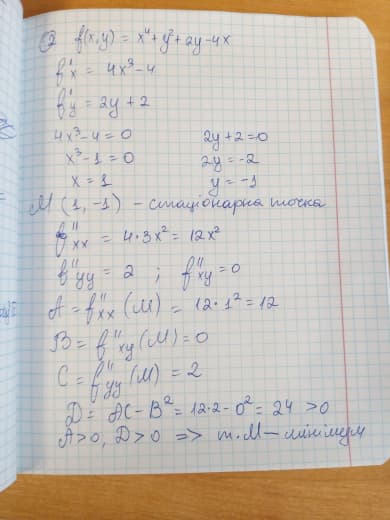 №2 f(x,y) = x⁴+y²+2y-4x
f'x = 4x³-4
f'y = 2y+2
4x³-4=0 2y+2=0
x³-1=0 2y=-2
x=1 y=-1
M (1,-1) - стаціонарна точка
f''xx = 4·3x² = 12x²
f''yy = 2 ; f''xy = 0
A = f''xx (M) = 12·1² = 12
B = f''xy (M) = 0
C = f''yy (M) = 2
D = AC-B² = 12·2-0² = 24 >0
A>0, D>0 => т. M - мінімум